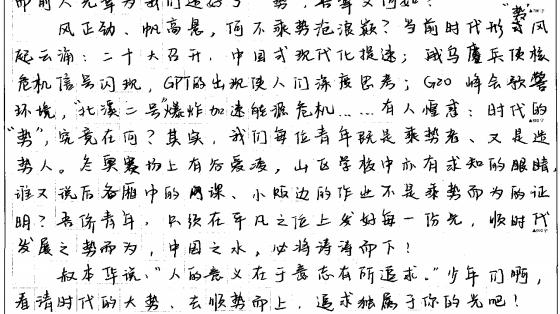 而前人先辈为我们造好了"势",吾辈又何如?
风正劲、帆高悬,何不乘势沧浪歌?当前时代形"势"风
起云涌:二十大召开,中国式现代化提速;俄乌鏖兵使核
危机信号闪现,GPT的出现使人们深度思考;G20峰会
环境,"北溪二号"爆炸加速能源危机……有人慢虑:时代的
"势",究竟在何?其实,我们每位青年既是乘势者、又是造
势人。冬奥赛场上有谷爱凌,山区学校中亦有求知的眼睛,
谁又说后备厢中的网课、小贩边的作业不是乘势而为的证
明?吾侪青年,只须在平凡之位上发好每一份光,顺时代
发展之势而为,中国之水,必将涛涛而下!
叔本华说:"人的意义在于意志有所追求。"少年们啊,
看清时代的大势、去顺势而上,追求独属于你的光吧!